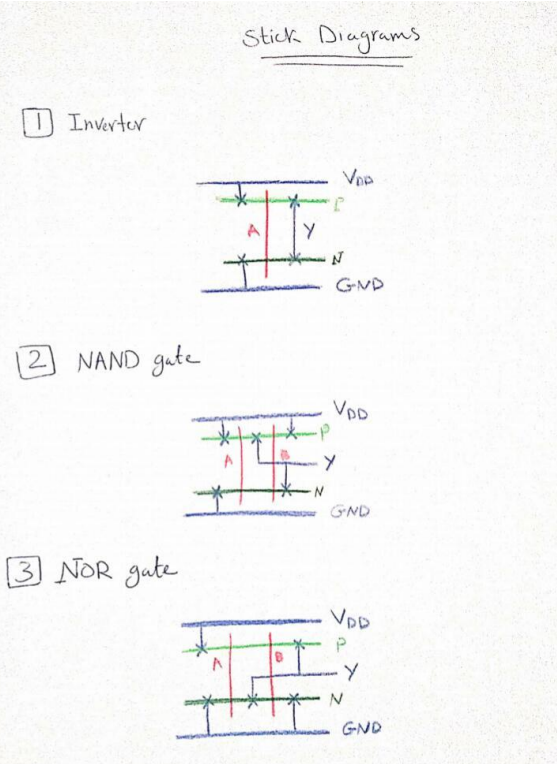 Stick Diagrams
1 Inverter
VDD
P
A Y
N
GND
2 NAND gate
VDD
P
A B Y
N
GND
3 NOR gate
VDD
P
A B Y
N
GND